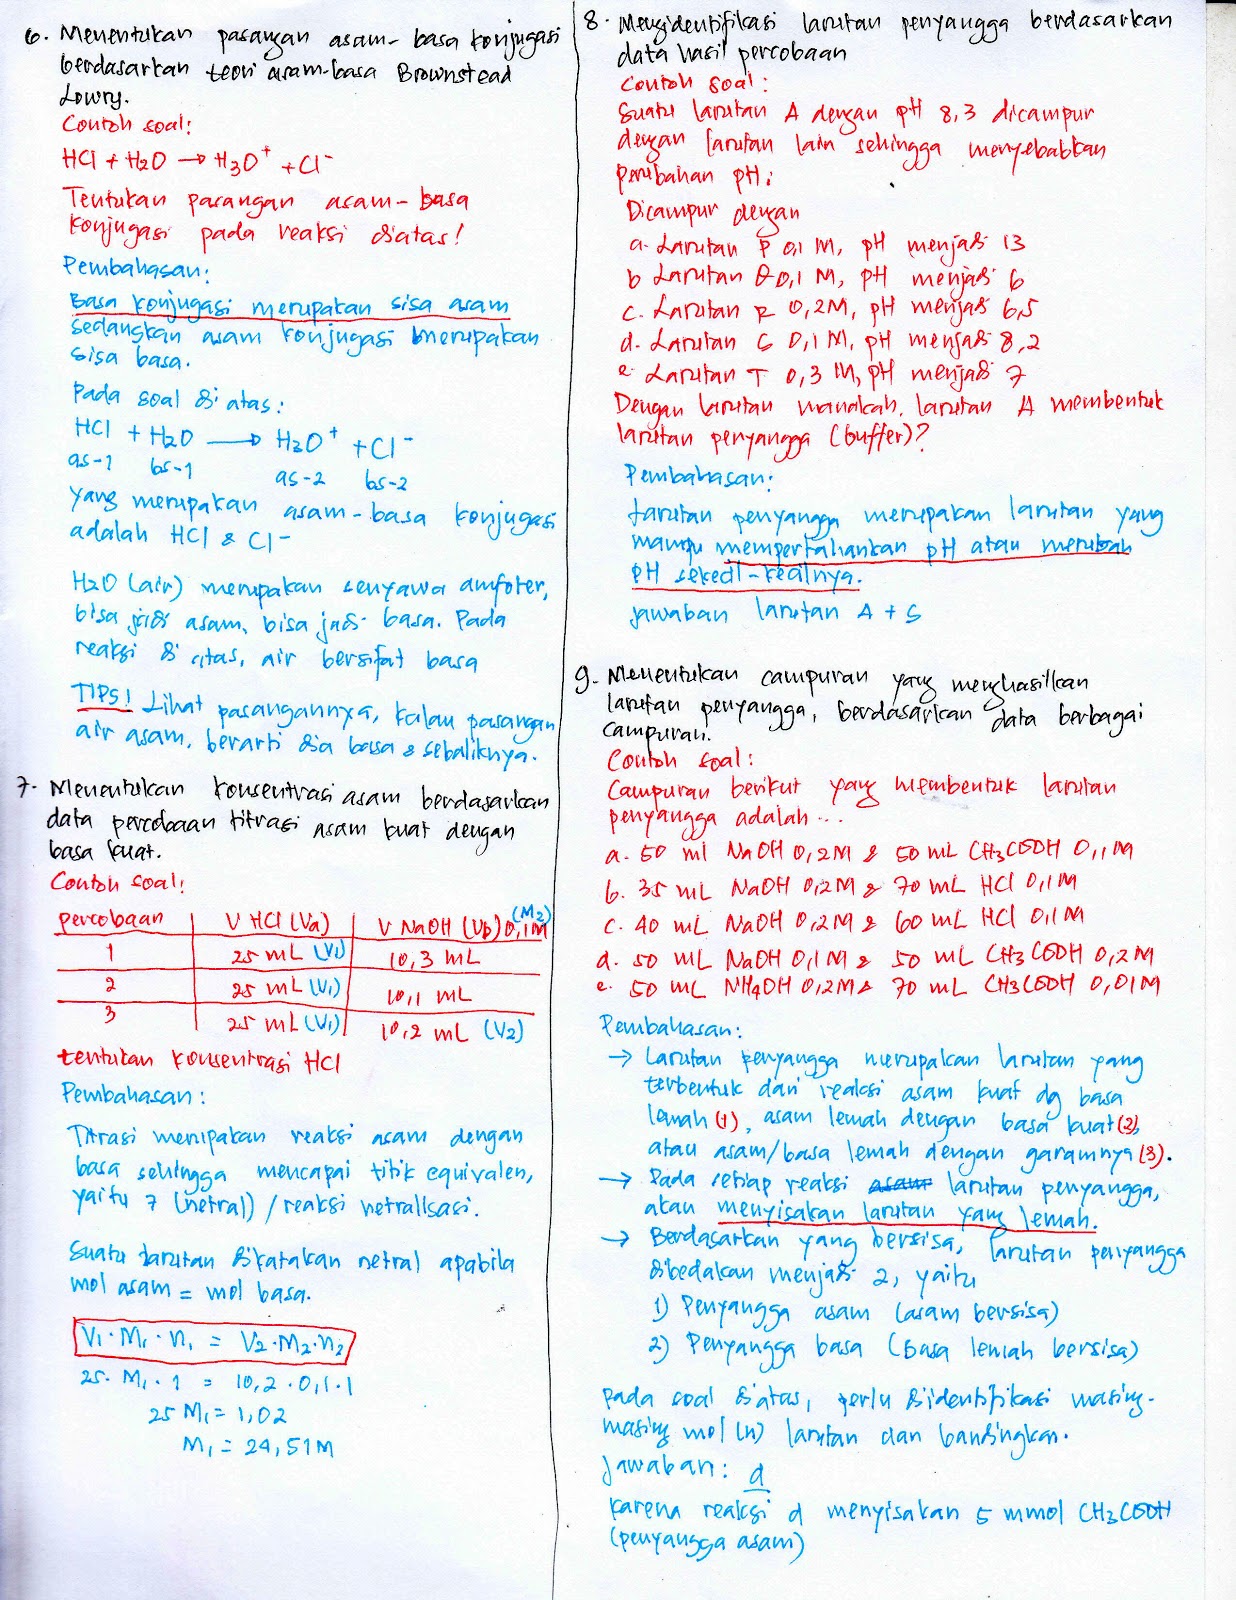 6. Menentukan pasangan asam-basa konjugasi
berdasarkan teori asam-basa Brownstead
Lowry.
Contoh soal:
HCl + H2O → H3O⁺ + Cl⁻
Tentukan pasangan asam-basa
konjugasi pada reaksi diatas!
Pembahasan:
Basa konjugasi merupakan sisa asam
sedangkan asam konjugasi merupakan
sisa basa.
Pada soal di atas:
HCl + H2O → H3O⁺ + Cl⁻
as-1 bs-1 as-2 bs-2
yang merupakan asam-basa konjugasi
adalah HCl & Cl⁻
H2O (air) merupakan senyawa amfoter,
bisa jadi asam, bisa jadi basa. Pada
reaksi di atas, air bersifat basa
TIPS! Lihat pasangannya, kalau pasangan
air asam, berarti dia basa & sebaliknya.
7. Menentukan konsentrasi asam berdasarkan
data percobaan titrasi asam kuat dengan
basa kuat.
Contoh soal:
percobaan V HCl (Va) V NaOH (Vb) 0,1M (M2)
1 25 mL (V1) 10,3 mL
2 25 mL (V1) 10,1 mL
3 25 mL (V1) 10,2 mL (V2)
tentukan konsentrasi HCl
Pembahasan:
Titrasi merupakan reaksi asam dengan
basa sehingga mencapai titik equivalen,
yaitu 7 (netral) / reaksi netralisasi.
Suatu larutan dikatakan netral apabila
mol asam = mol basa.
V1 · M1 · n1 = V2 · M2 · n2
25 · M1 · 1 = 10,2 · 0,1 · 1
25 M1 = 1,02
M1 = 24,51 M
8. Mengidentifikasi larutan penyangga berdasarkan
data hasil percobaan
Contoh soal:
Suatu larutan A dengan pH 8,3 dicampur
dengan larutan lain sehingga menyebabkan
perubahan pH:
Dicampur dengan
a. Larutan P 0,1 M, pH menjadi 13
b Larutan Q 0,1 M, pH menjadi 6
c. Larutan R 0,2M, pH menjadi 6,5
d. Larutan S 0,1 M, pH menjadi 8,2
e. Larutan T 0,3 M, pH menjadi 7
Dengan larutan manakah, larutan A membentuk
larutan penyangga (buffer)?
Pembahasan:
Larutan penyangga merupakan larutan yang
mampu mempertahankan pH atau merubah
pH sekecil-kecilnya.
jawaban larutan A + S
9. Menentukan campuran yang menghasilkan
larutan penyangga, berdasarkan data berbagai
campuran.
Contoh soal:
Campuran berikut yang membentuk larutan
penyangga adalah...
a. 50 ml NaOH 0,2M & 50 mL CH3COOH 0,1M
b. 35 mL NaOH 0,2M & 70 mL HCl 0,1M
c. 40 mL NaOH 0,2M & 60 mL HCl 0,1M
d. 50 mL NaOH 0,1M & 50 mL CH3COOH 0,2M
e. 50 mL NH4OH 0,2M & 70 mL CH3COOH 0,01M
Pembahasan:
→ Larutan penyangga merupakan larutan yang
terbentuk dari reaksi asam kuat dg basa
lemah (1), asam lemah dengan basa kuat (2),
atau asam/basa lemah dengan garamnya (3).
→ Pada setiap reaksi asam larutan penyangga,
akan menyisakan larutan yang lemah.
→ Berdasarkan yang bersisa, larutan penyangga
dibedakan menjadi 2, yaitu
1) Penyangga asam (asam bersisa)
2) Penyangga basa (Basa lemah bersisa)
Pada soal diatas, perlu diidentifikasi masing-
masing mol (n) larutan dan bandingkan.
Jawaban: d
Karena reaksi d menyisakan 5 mmol CH3COOH
(penyangga asam)